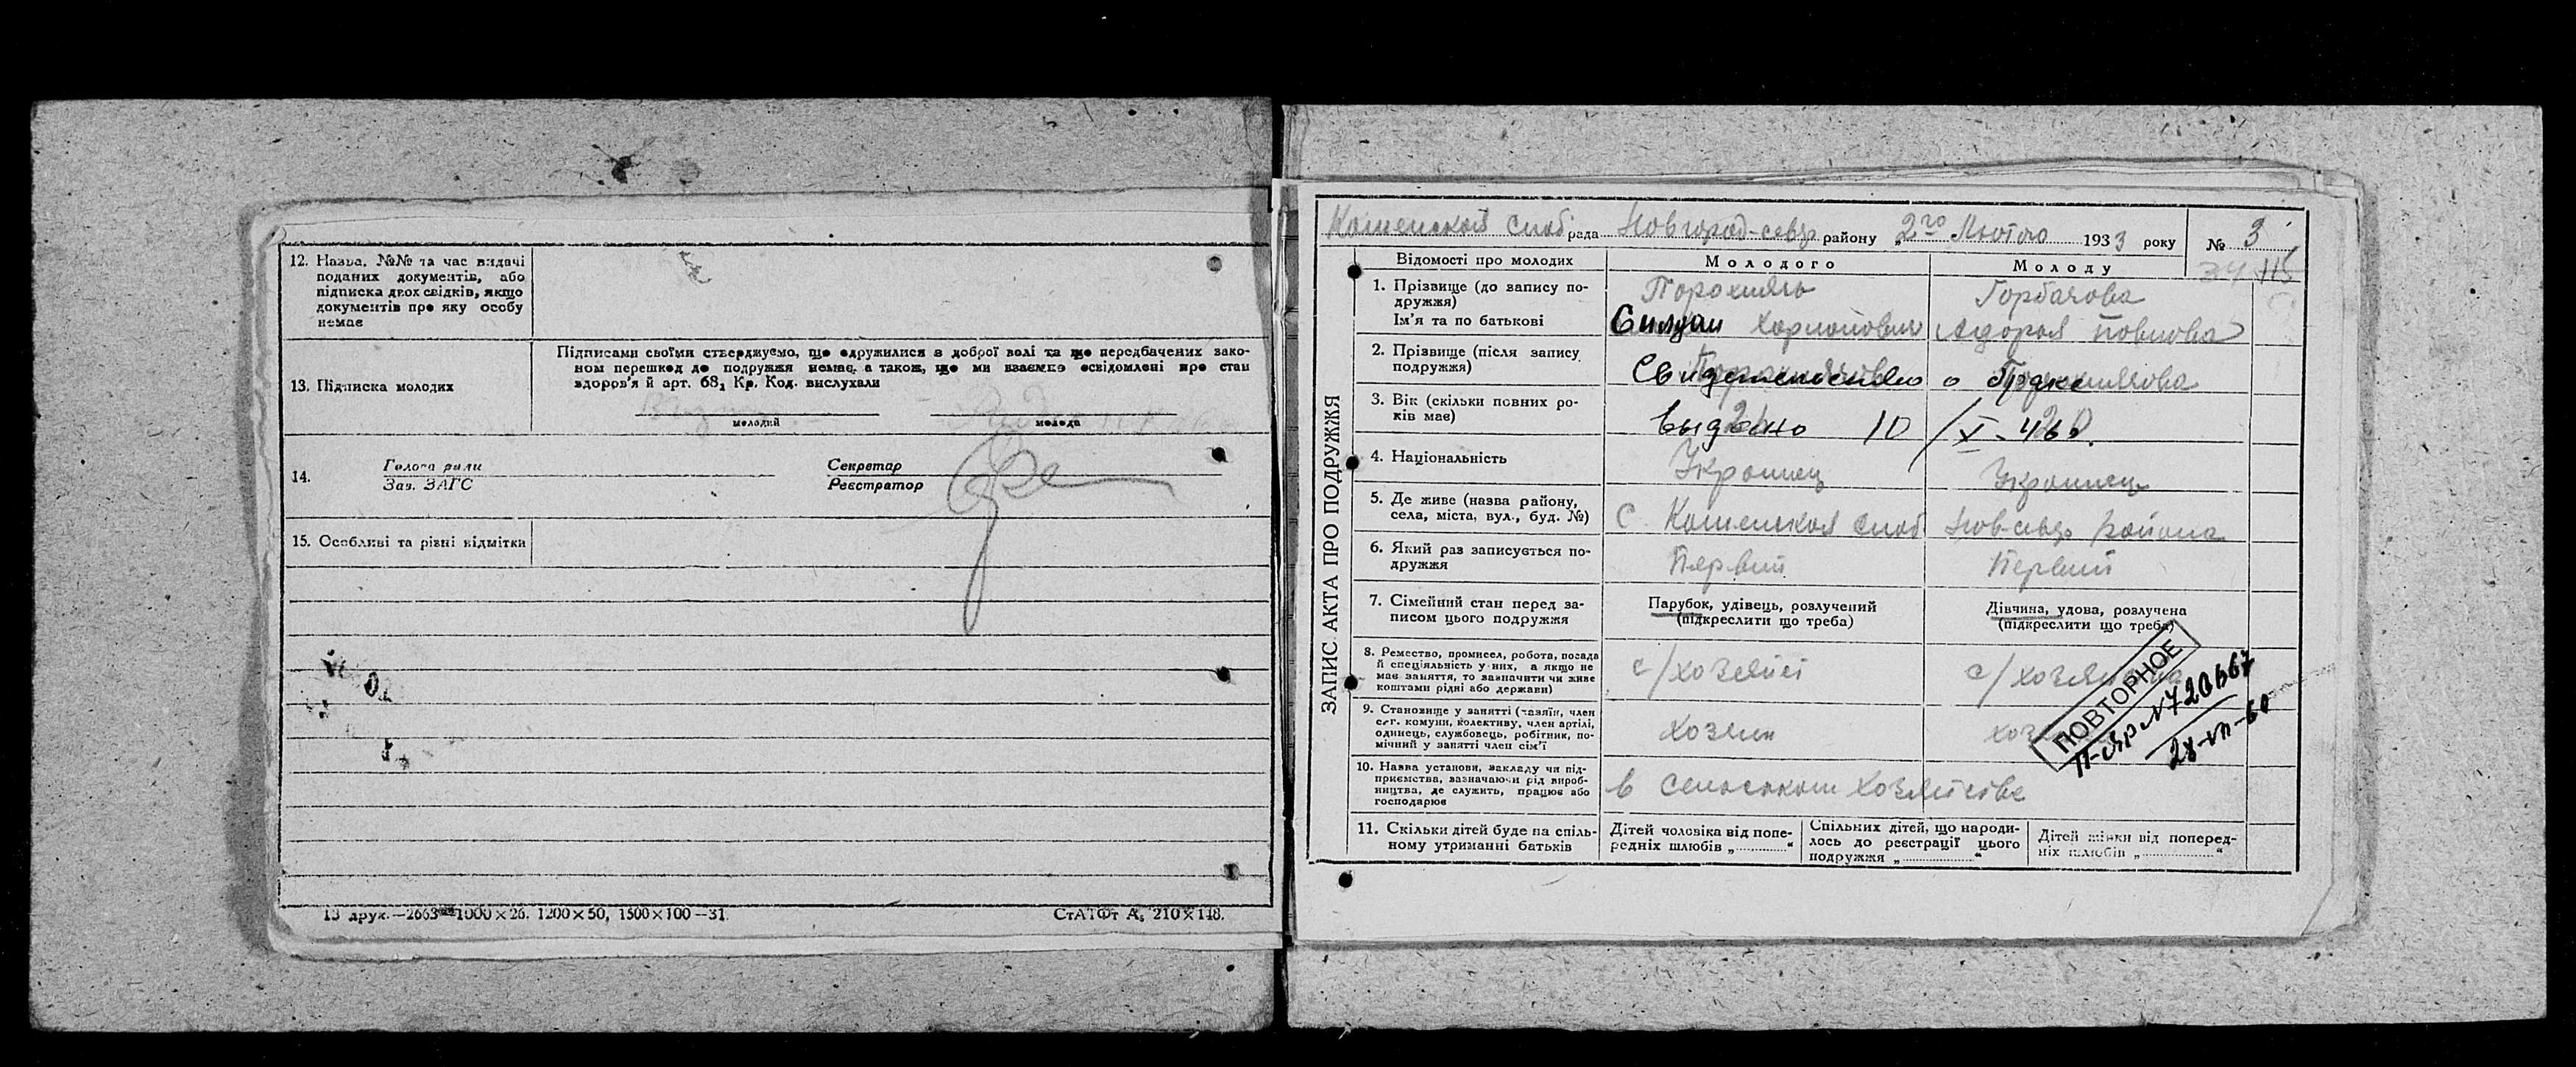 12. Назва, №№ та час видачі
поданих документів, або
підписка двох свідків, якщо
документів про яку особу
немає
13. Підписка молодих
Підписами своїми стверджуємо, що одружилися з доброї волі та що передбачених зако-
ном перешкод до подружжя немає, а також, що ми взаємно освідомлені про стан
здоров'я й арт. 68₁ Кр. Код. вислухали
молодий молода
14. Голова ради Секретар
Зав. ЗАГС Реєстратор
15. Особливі та різні відмітки
13 друк.—2663 1000×26. 1200×50, 1500×100—31.
СтАТФт А₅ 210×148.
ЗАПИС АКТА ПРО ПОДРУЖЖЯ
Каменской Слоб рада Новгород-север району „2го Лютого 1933 року № 3
Відомості про молодих Молодого Молоду
1. Прізвище (до запису по-
дружжя)
Ім'я та по батькові
Горбачова
2. Прізвище (після запису
подружжя)
Свидетельство о браке
3. Вік (скільки повних ро-
ків має)
выдано 10/X-46г.
4. Національність
Украинец Украинец
5. Де живе (назва району,
села, міста, вул., буд. №)
С. Каменская Слоб Нов-севр района
6. Який раз записується по-
дружжя
Первий Первий
7. Сімейний стан перед за-
писом цього подружжя
Парубок, удівець, розлучений
(підкреслити що треба)
Дівчина, удова, розлучена
(підкреслити що треба)
8. Ремество, промисел, робота, посада
й спеціяльність у них, а якщо не
має заняття, то зазначити чи живе
коштами рідні або держави)
9. Становище у занятті (хазяїн, член
с.-г. комуни, колективу, член артілі,
одинець, службовець, робітник, по-
мічний у занятті член сім'ї
Хозяин
ПОВТОРНОЕ
28-VII-60
10. Назва установи, закладу чи під-
приємства, зазначаючи рід вироб-
ництва, де служить, працює або
господарює
в сельском хозяйстве
11. Скільки дітей буде на спіль-
ному утриманні батьків
Дітей чоловіка від попе-
редніх шлюбів „..........“
Спільних дітей, що народи-
лось до реєстрації цього
подружжя „..........“
Дітей жінки від поперед-
ніх шлюбів „..........“